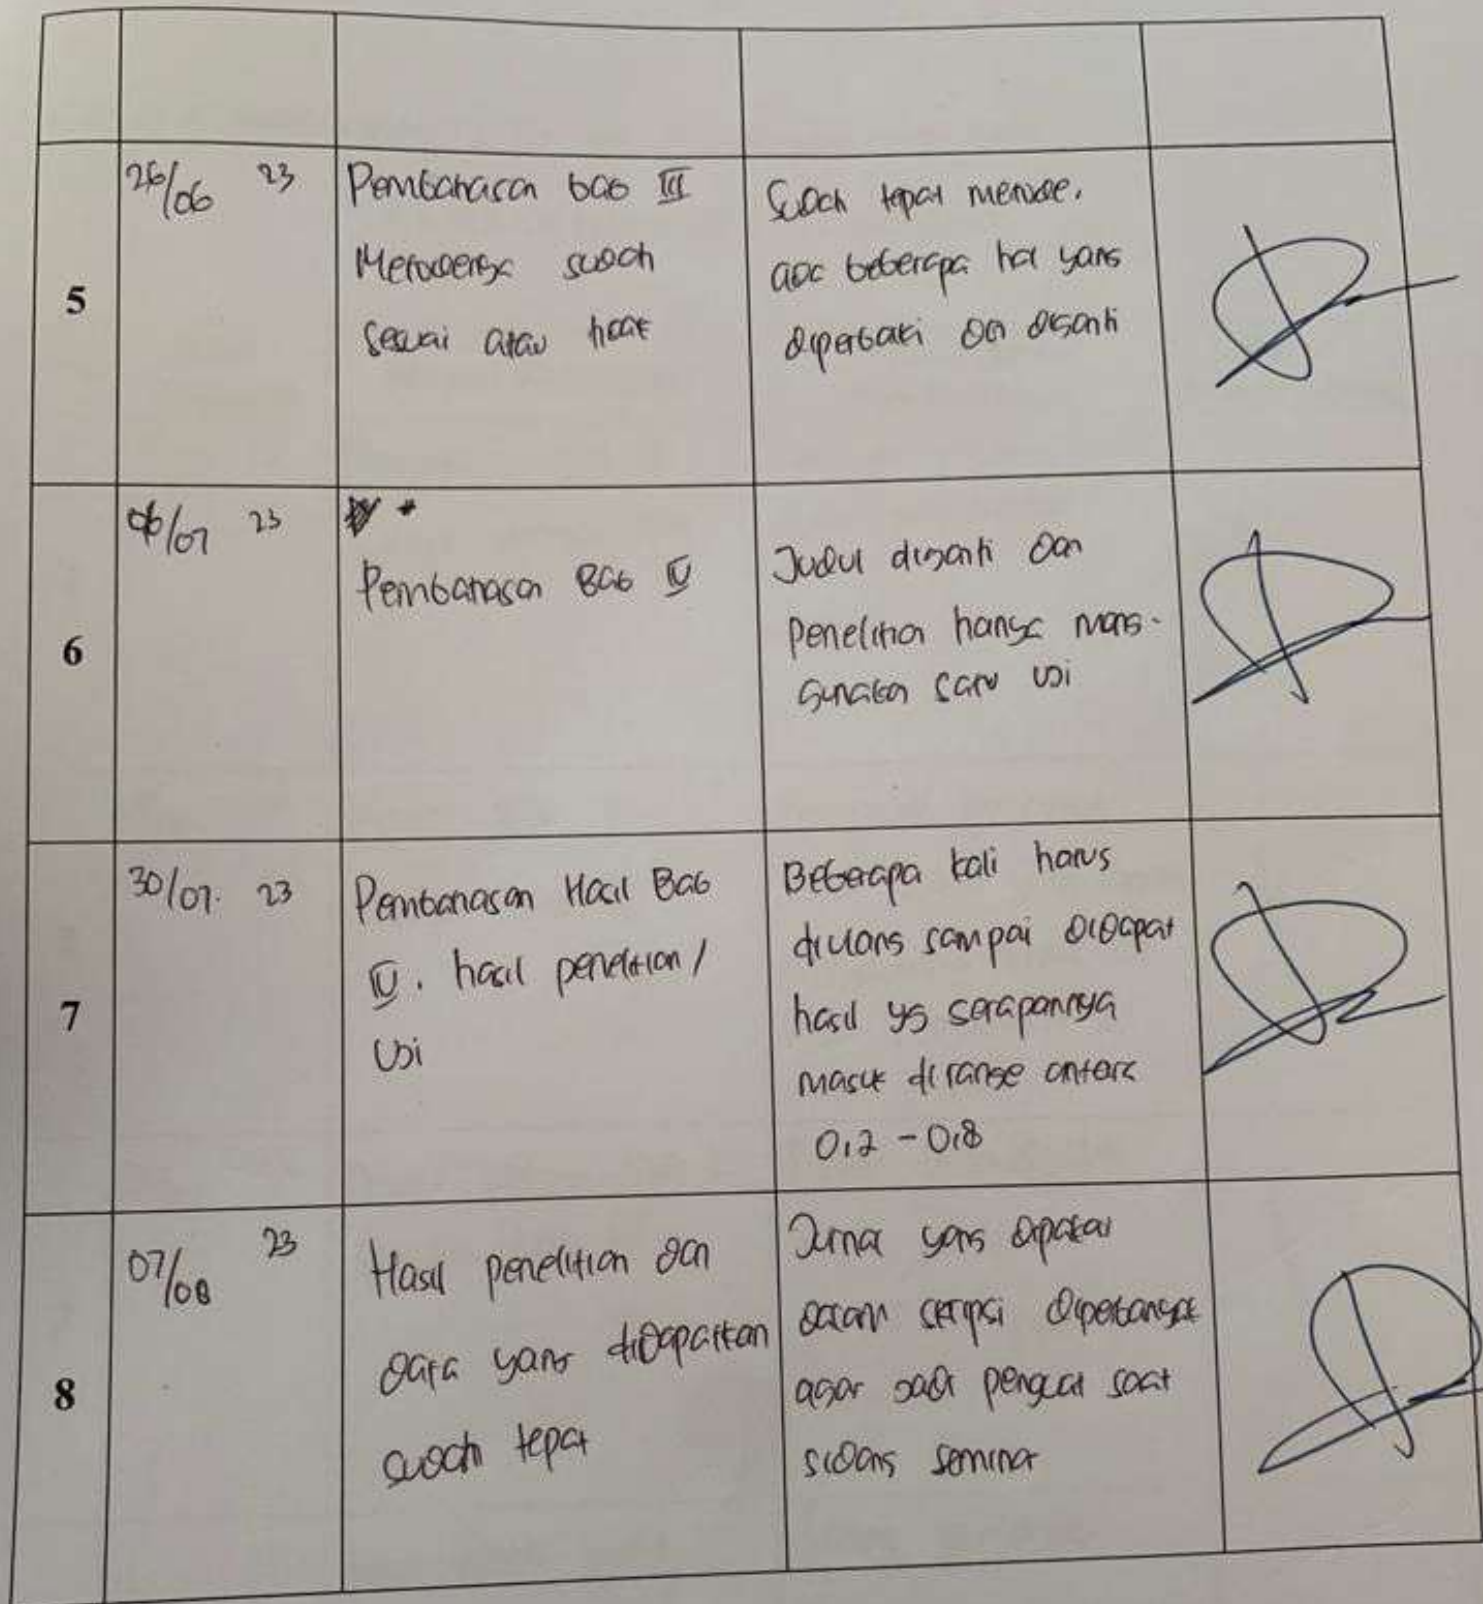 5
26/06 23
Pembahasan bab III
Metodenya sudah
sesuai atau tidak
Sudah tepat metode.
ada beberapa hal yang
diperbaiki dan diganti
6
06/07 23
Pembahasan Bab IV
Judul diganti dan
penelitian hanya meng-
gunakan satu uji
7
30/07. 23
Pembahasan Hasil Bab
IV. hasil penelitian /
uji
Beberapa kali harus
diulang sampai didapat
hasil yg serapannya
masuk di range antara
0,2 - 0,8
8
07/08 23
Hasil penelitian dan
data yang didapatkan
sudah tepat
Jurnal yang dipakai
dalam skripsi diperbanyak
agar jadi penguat saat
sidang seminar